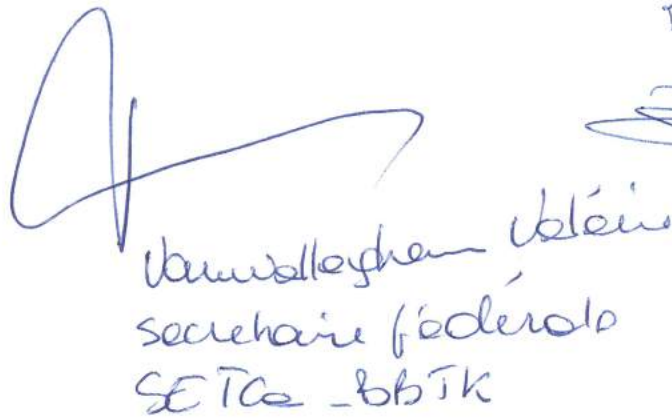 Vanwalleghem Valérie
secrétaire fédérale
SETCa-BBTK